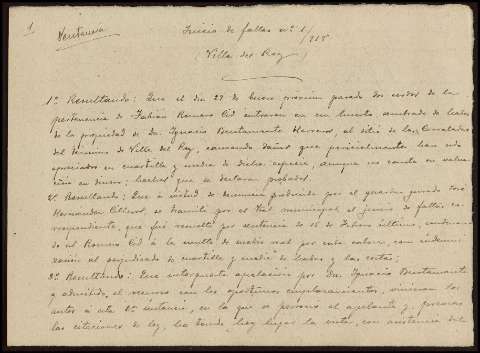 1
Sentencia
Juicio de faltas nº 1/915
(Villa del Rey)
1º Resultando: Que el día 27 de Enero próximo pasado dos cerdos de la
pertenencia de Fabián Romero Cid entraron en un huerto sembrado de
de la propiedad de Dn. Ignacio Bustamante Herreros, al sitio de las
del término de Villa del Rey, causando daños que pericialmente han sido
apreciados en cuartilla y media de dicha especie, aunque no consta su valua-
ción en dinero; hechos que se declaran probados.
2º Resultando: Que a virtud de denuncia producida por el guarda jurado José
Hernández, se tramitó por el Tral municipal el juicio de faltas co-
rrespondiente, que fué resuelto por sentencia de 15 de Febrero último, condenan-
do al Romero Cid à la multa de medio real por cada cabeza, con indemni-
zación al perjudicado de cuartilla y media de y las costas;
3º Resultando: Que interpuesta apelación por Dn. Ignacio Bustamante
y admitido el recurso con los oportunos emplazamientos, vinieron los
autos à esta 2ª instancia, en la que se personó el apelante y, previas
las citaciones de ley, ha tenido hoy lugar la vista, con asistencia del